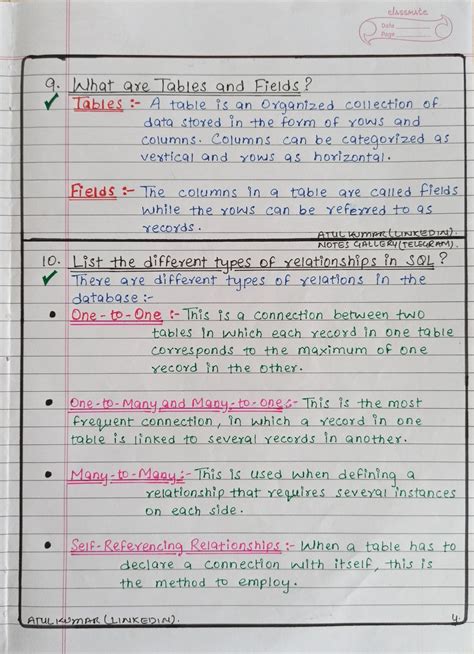 classmate
Date
Page
9. What are Tables and Fields?
Tables :- A table is an organized collection of
data stored in the form of rows and
columns. Columns can be categorized as
vertical and rows as horizontal.
Fields :- The columns in a table are called fields
while the rows can be referred to as
records.
ATUL KUMAR (LINKEDIN).
NOTES GALLERY (TELEGRAM).
10. List the different types of relationships in SQL?
There are different types of relations in the
database :-
One-to-One :- This is a connection between two
tables in which each record in one table
corresponds to the maximum of one
record in the other.
One-to-Many and Many-to-one :- This is the most
frequent connection, in which a record in one
table is linked to several records in another.
Many-to-Many :- This is used when defining a
relationship that requires several instances
on each side.
Self-Referencing Relationships :- When a table has to
declare a connection with itself, this is
the method to employ.
ATUL KUMAR (LINKEDIN).
4.